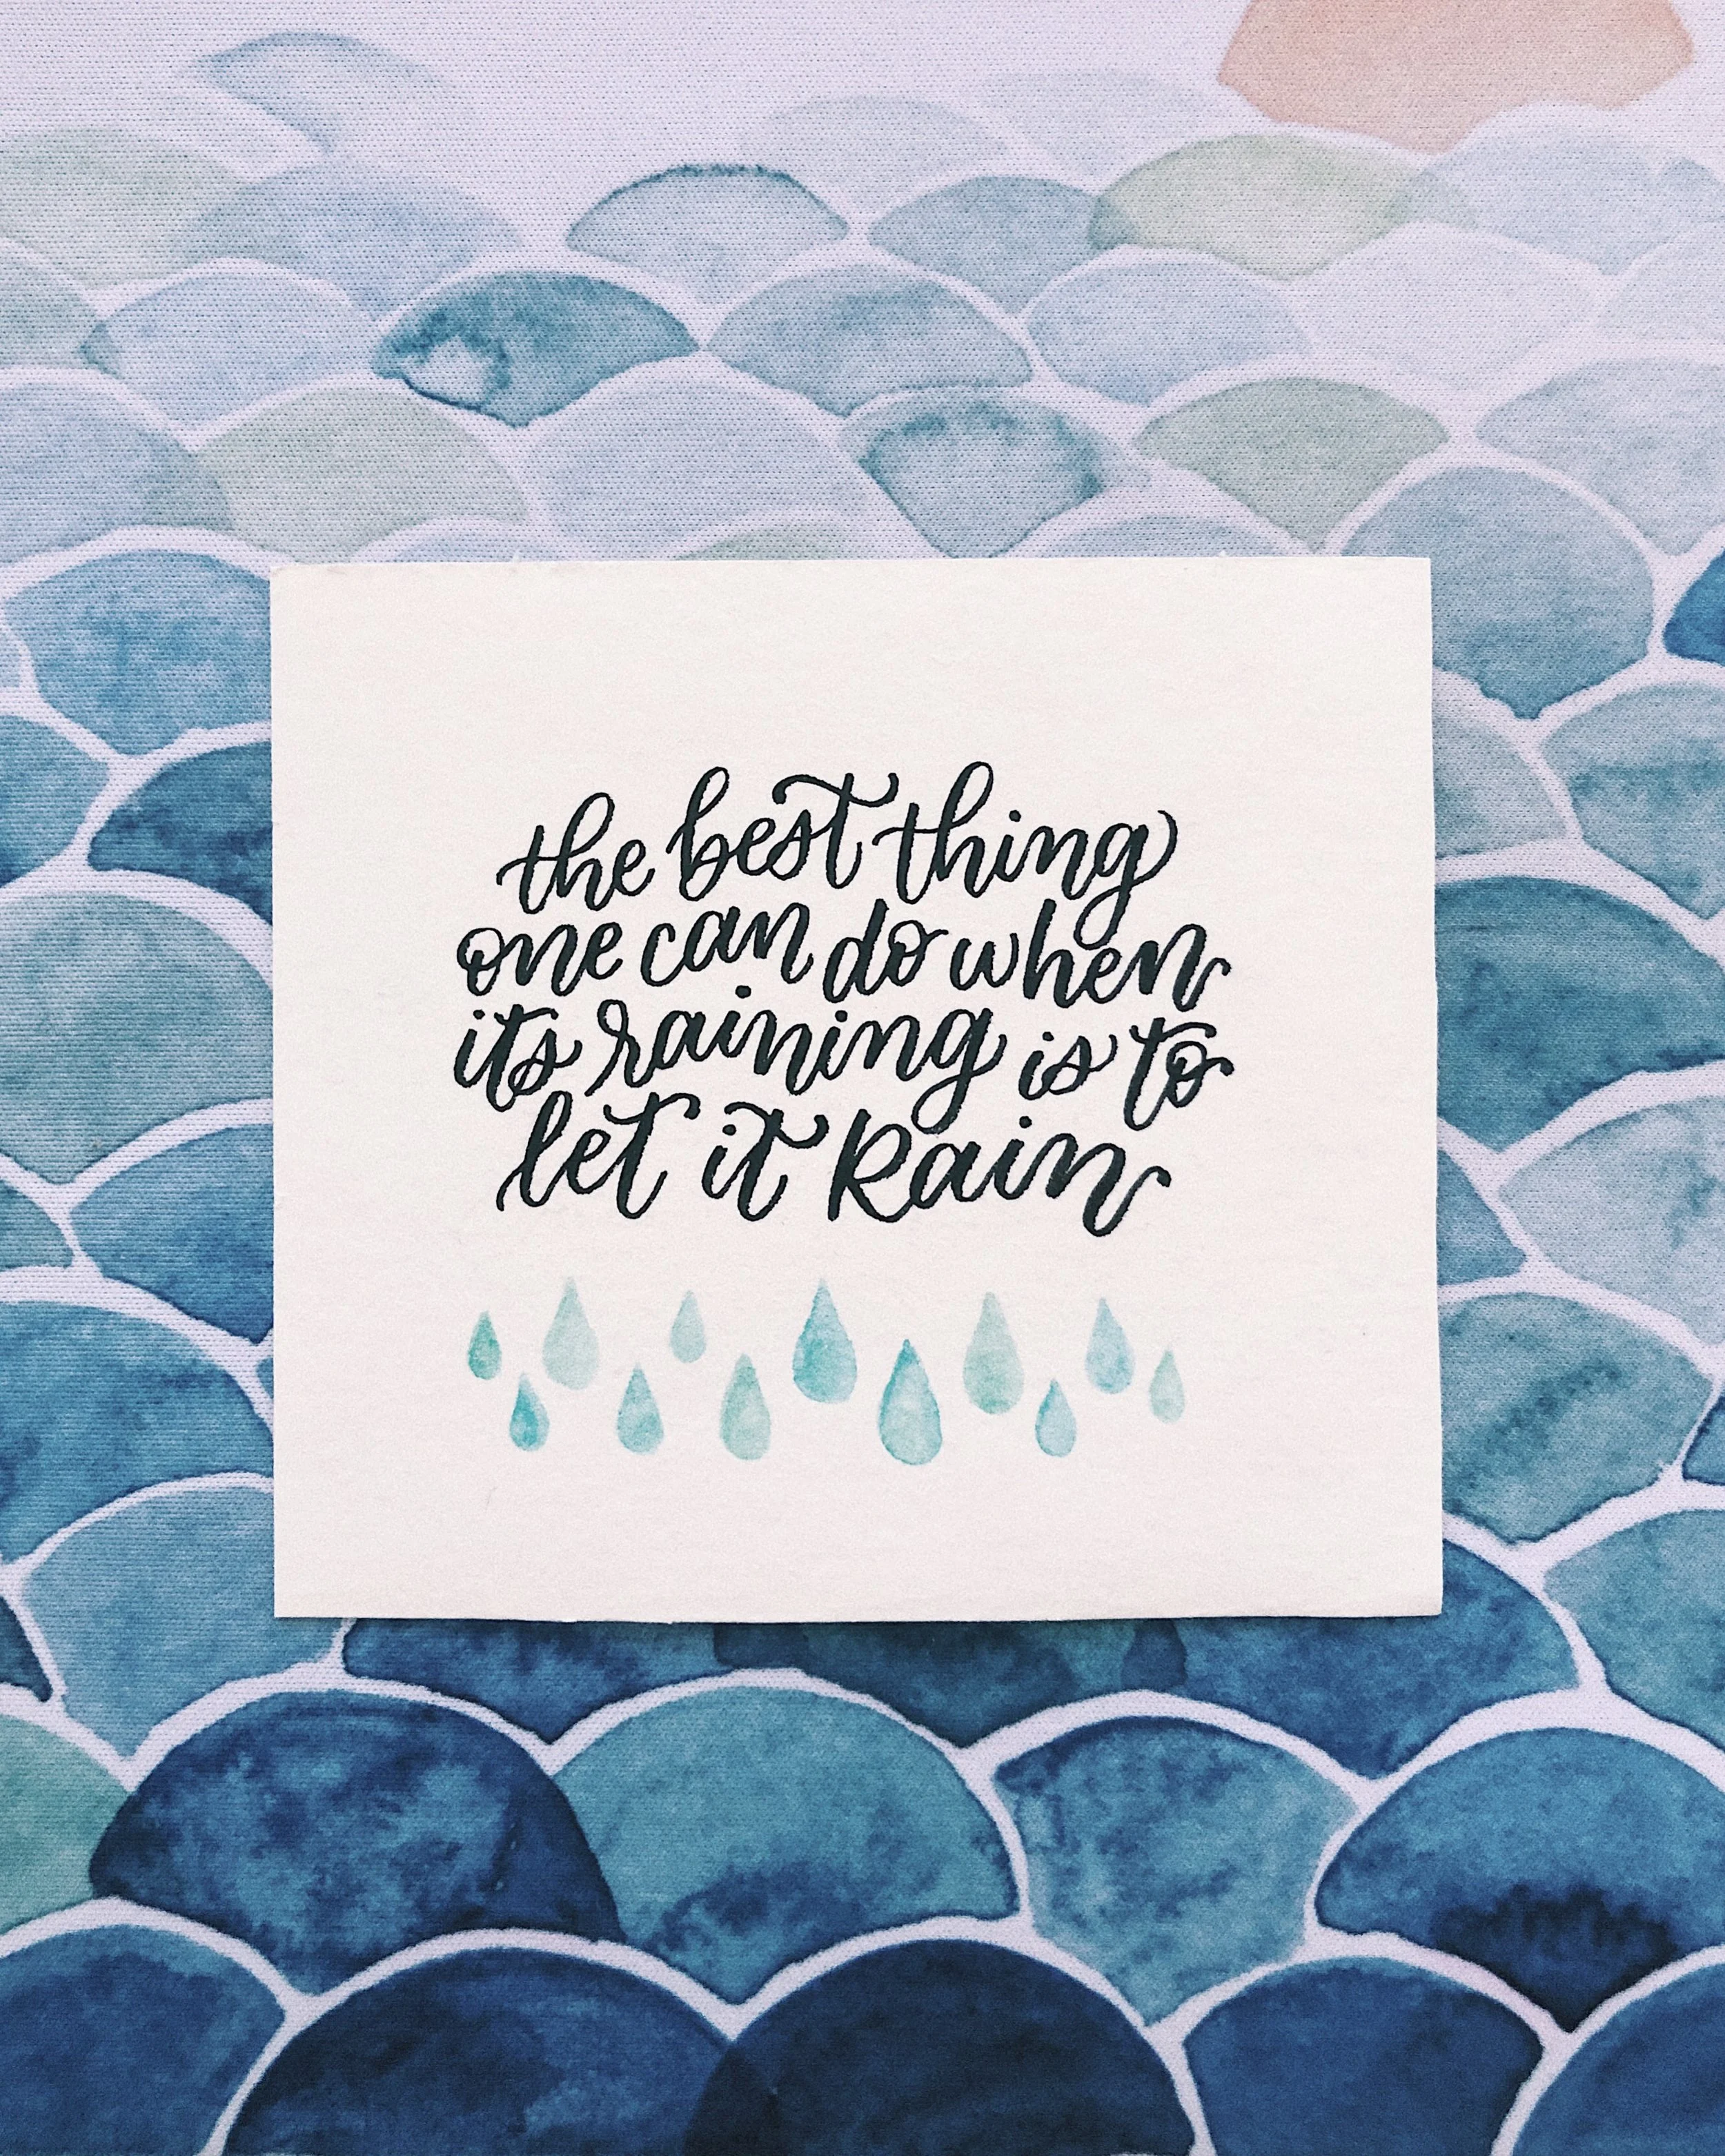 the best thing
one can do when
its raining is to
let it Rain